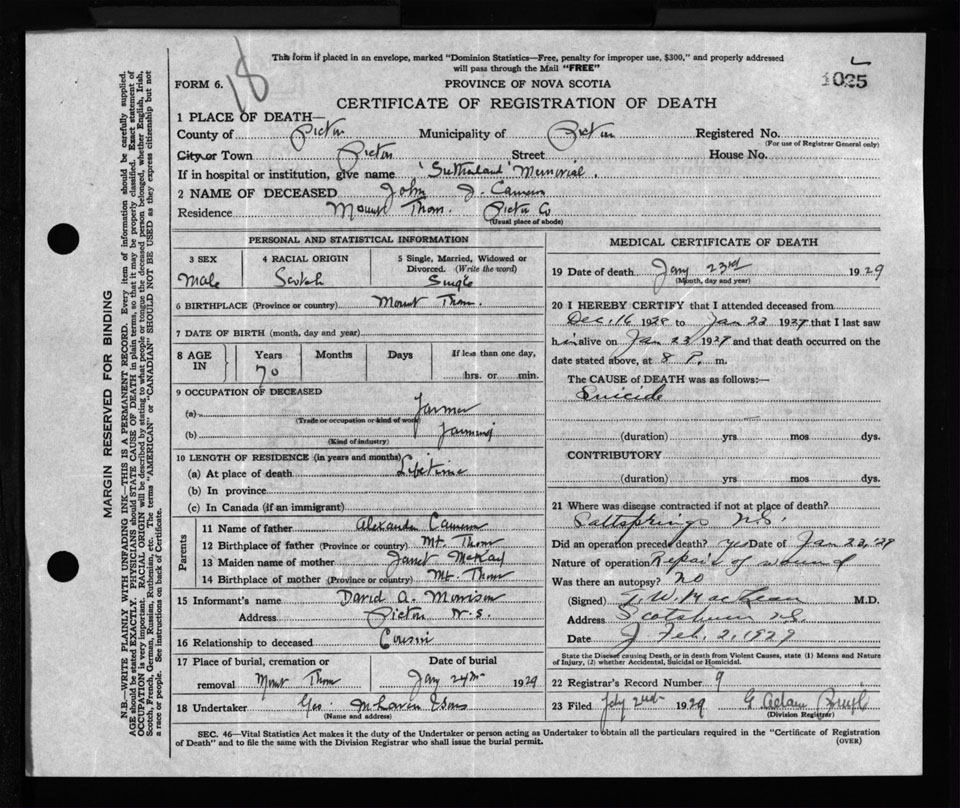 18
This form if placed in an envelope, marked "Dominion Statistics—Free, penalty for improper use, $300," and properly addressed
will pass through the Mail "FREE"
FORM 6.
PROVINCE OF NOVA SCOTIA
1025
CERTIFICATE OF REGISTRATION OF DEATH
1 PLACE OF DEATH—
County of Pictou Municipality of Pictou Registered No.
(For use of Registrar General only)
City or Town Pictou Street House No.
If in hospital or institution, give name 'Sutherland' Memorial.
2 NAME OF DECEASED John J. Cameron
Residence Mount Thom. Pictou Co
(Usual place of abode)
PERSONAL AND STATISTICAL INFORMATION
3 SEX 4 RACIAL ORIGIN 5 Single, Married, Widowed or
Divorced. (Write the word)
Male Scotch Single
6 BIRTHPLACE (Province or country) Mount Thom.
7 DATE OF BIRTH (month, day and year)
8 AGE IN Years Months Days If less than one day,
70 hrs. or min.
9 OCCUPATION OF DECEASED
(a) Farmer
(Trade or occupation or kind of work)
(b) Farming
(Kind of industry)
10 LENGTH OF RESIDENCE (in years and months)
(a) At place of death Lifetime
(b) In province
(c) In Canada (if an immigrant)
Parents
11 Name of father Alexander Cameron
12 Birthplace of father (Province or country) Mt. Thom
13 Maiden name of mother Janet McKay
14 Birthplace of mother (Province or country) Mt. Thom
15 Informant's name David A. Morrison
Address Pictou N.S.
16 Relationship to deceased Cousin
17 Place of burial, cremation or Date of burial
removal Mount Thom Jany 24th 1929
18 Undertaker Geo. McLaren & Sons
(Name and address)
MEDICAL CERTIFICATE OF DEATH
19 Date of death Jany 23rd 1929
(Month, day and year)
20 I HEREBY CERTIFY that I attended deceased from
Dec. 16 1928 to Jan 23 1929 that I last saw
him alive on Jan 23 1929 and that death occurred on the
date stated above, at 8 P. m.
The CAUSE of DEATH was as follows:—
Suicide
(duration) yrs. mos dys.
CONTRIBUTORY
(duration) yrs. mos dys.
21 Where was disease contracted if not at place of death?
Saltsprings N.S.
Did an operation precede death? yes Date of Jan 22, '28
Nature of operation Repair of wound
Was there an autopsy? No
(Signed) T. W. MacLean M.D.
Address Scotsburn N.S.
Date Feb. 2, 1929
State the Disease causing Death, or in death from Violent Causes, state (1) Means and Nature
of Injury, (2) whether Accidental, Suicidal or Homicidal.
22 Registrar's Record Number 9
23 Filed July 2nd 1929 G Adam
(Division Registrar)
SEC. 46—Vital Statistics Act makes it the duty of the Undertaker or person acting as Undertaker to obtain all the particulars required in the "Certificate of Registration
of Death" and to file the same with the Division Registrar who shall issue the burial permit.
(OVER)
MARGIN RESERVED FOR BINDING
N.B.—WRITE PLAINLY WITH UNFADING INK—THIS IS A PERMANENT RECORD. Every item of information should be carefully supplied.
AGE should be stated EXACTLY. PHYSICIANS should STATE CAUSE OF DEATH in plain terms, so that it may be properly classified. Exact statement of
OCCUPATION is very important. RACIAL ORIGIN will be described by stating to what people or tongue the deceased person belonged, whether English, Irish,
Scotch, French, German, Russian, Ruthenian, etc. The terms "AMERICAN" or "CANADIAN" SHOULD NOT BE USED as they express citizenship but not
a race or people. See instructions on back of Certificate.